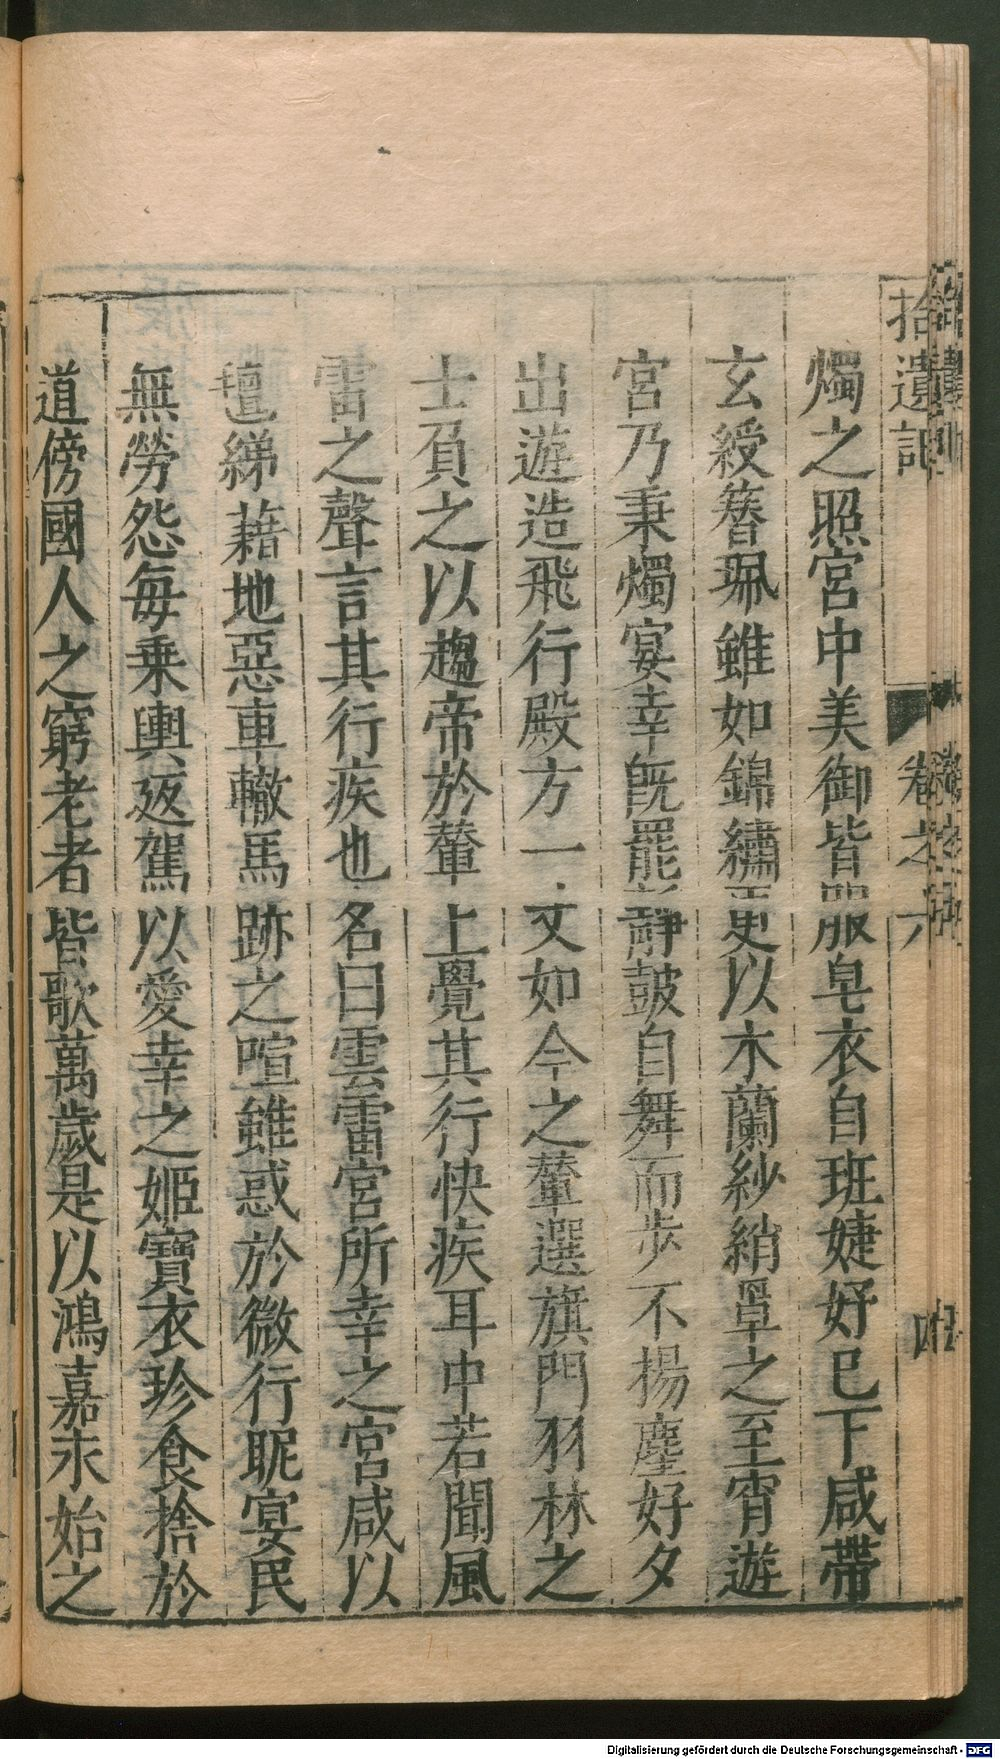 拾遺記 卷之六 四
燭之照宮中美御皆服皂衣自班婕妤已下咸帶
玄綬簪珮雖如錦繡更以木蘭紗綃罩之至宵遊
宮乃秉燭宴幸旣罷靜鼓自舞而步不揚塵好夕
出遊造飛行殿方一丈如今之輦選旗門羽林之
士負之以趨帝於輦上覺其行快疾耳中若聞風
雷之聲言其行疾也名曰雲雷宮所幸之宮咸以
氊綈藉地惡車轍馬跡之喧雖惑於微行昵宴民
無勞怨每乗輿返駕以愛幸之姬寶衣珍食捨於
道傍國人之窮老者皆歌萬歲是以鴻嘉永始之
Digitalisierung gefördert durch die Deutsche Forschungsgemeinschaft - DFG